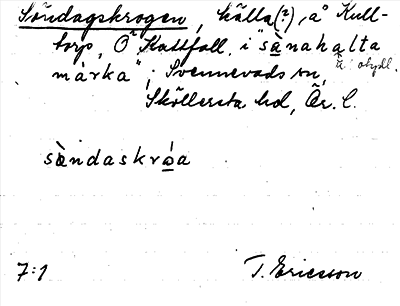 Söndagskrogen, källa(?), å Kull-
torp, Ö Kattfall, i "sànahalta
märka", Svennevads sn,
ä otydl.
Sköllersta hd, Ör. l.
sàndaskróa
7:1 T. Ericsson